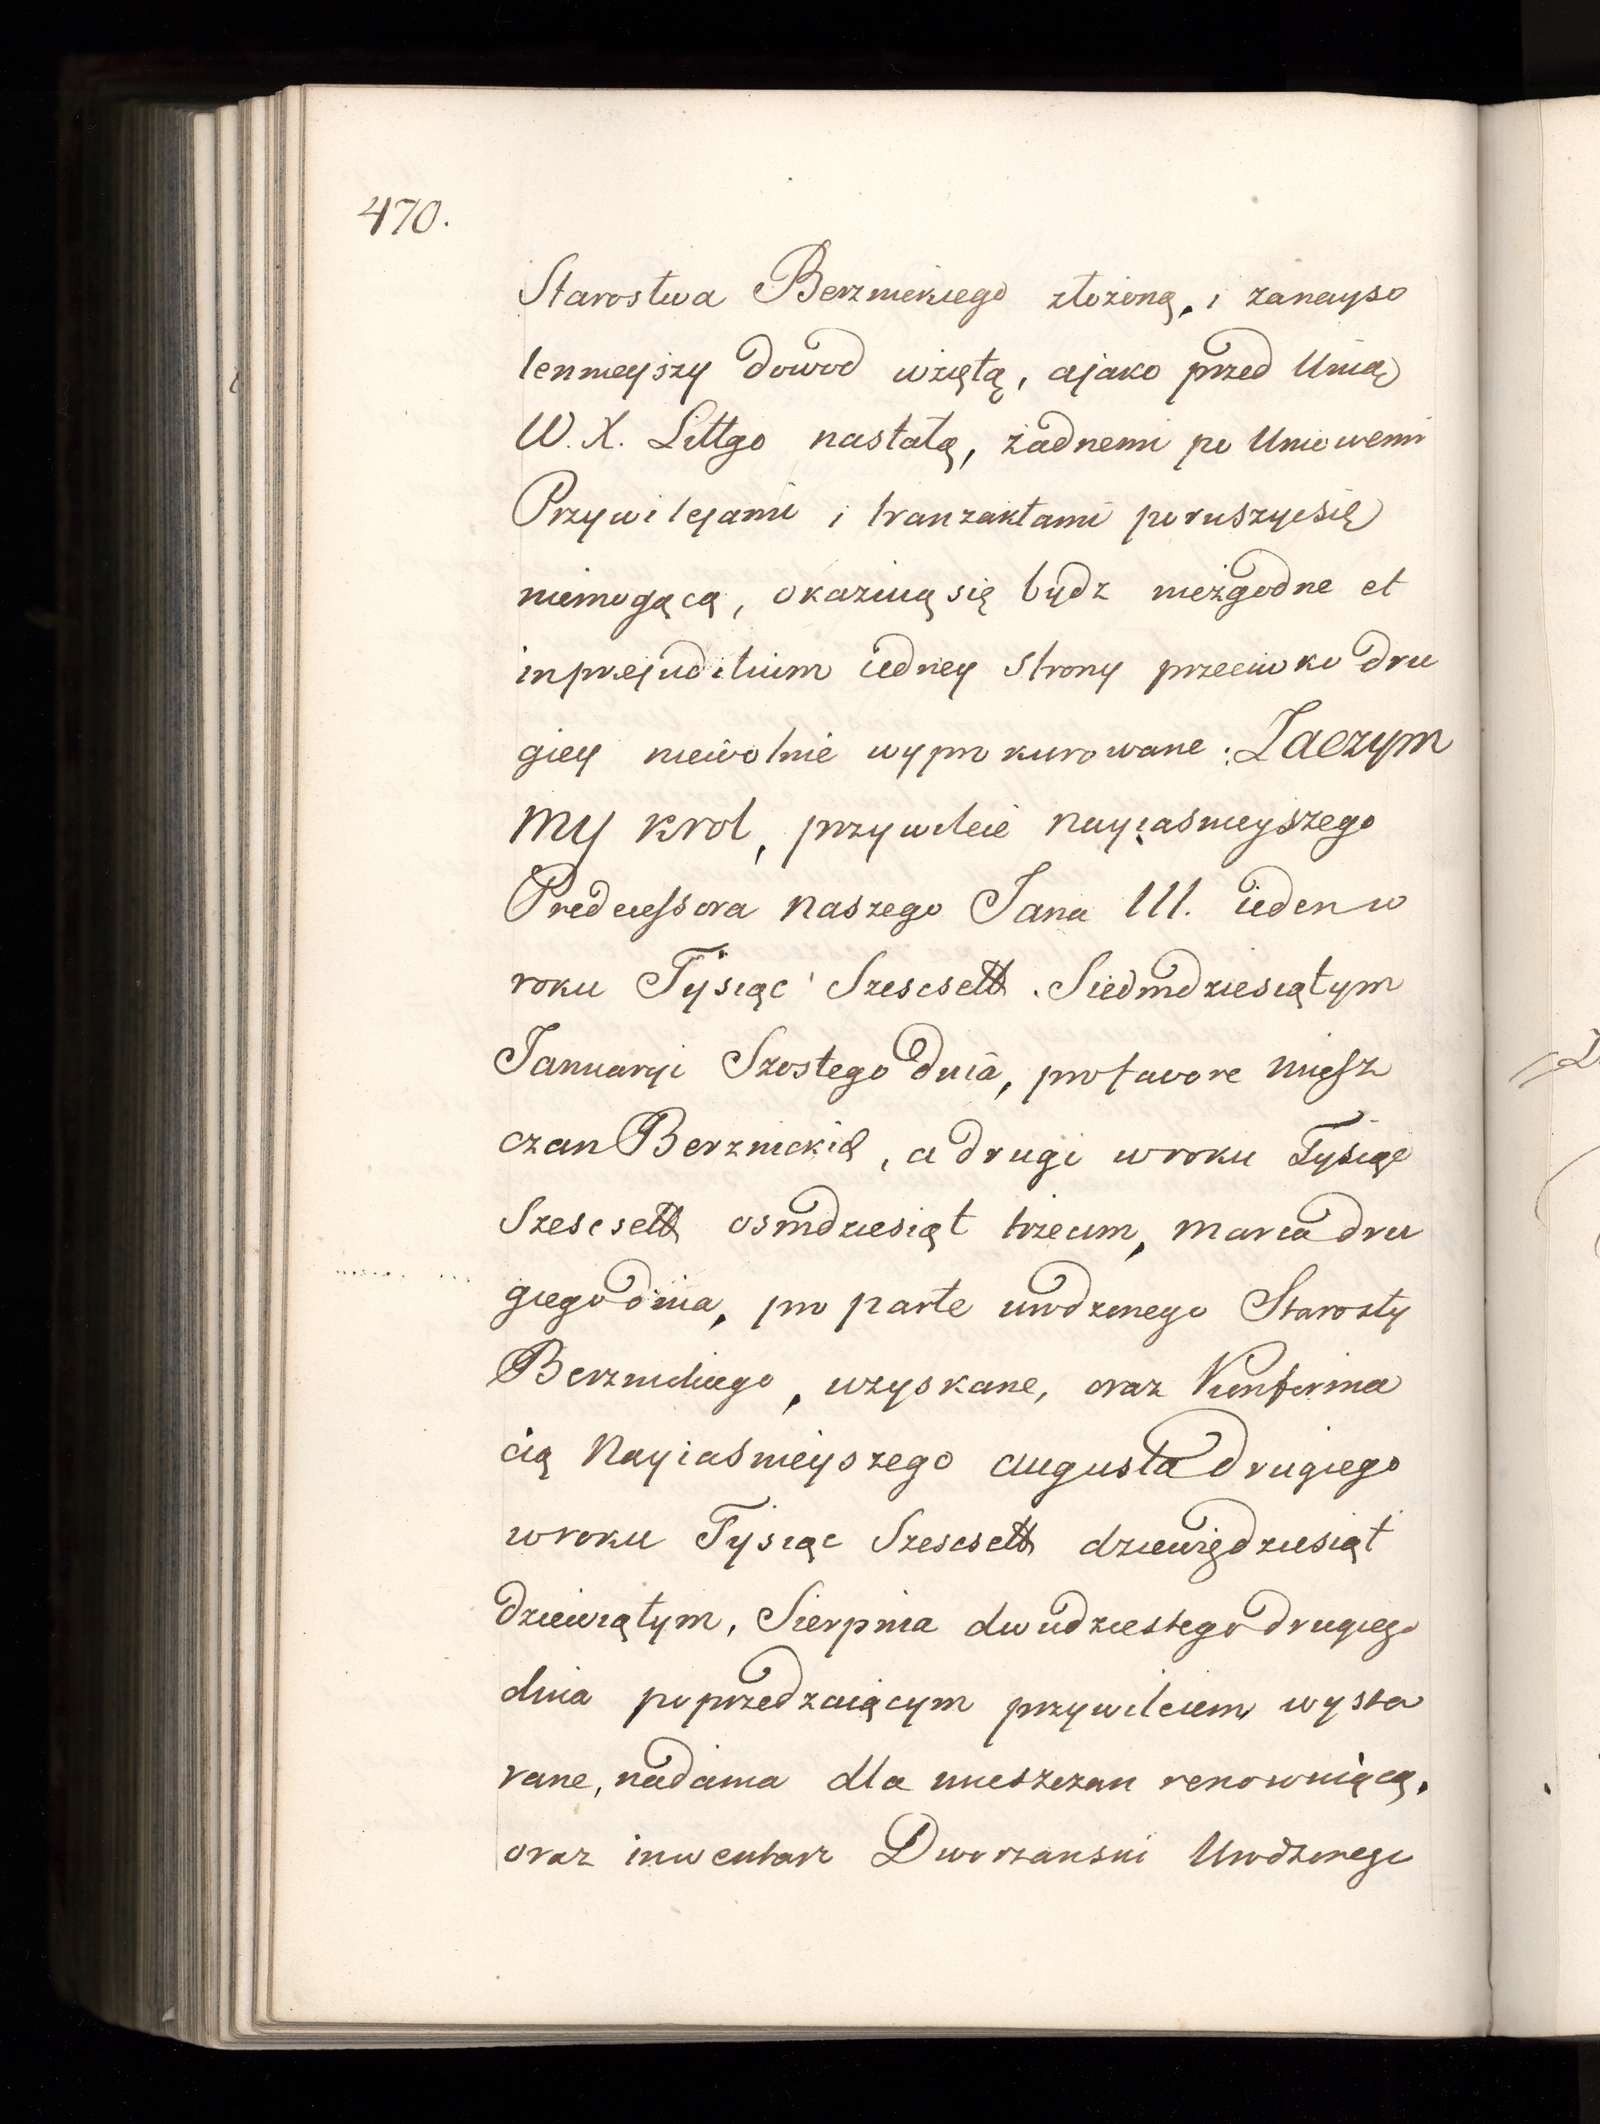 470.
Starostwa Berznickiego złożoną, i zanayso
lennieyszy dowod wziętą, ajako przed Unią
W. X. Littgo nastałą, żadnemi po Uniowemi
Przywilejami i tranzaktami poruszyćsię
niemogącą, okazuią się bydz niezgodne et
inprejuditium iedney strony przeciwko dru
giey niewolnie wyprokurowane. Zaczym
My Krol, przywileie Nayiasnieyszego
Predecessora Naszego Jana III. ieden w
roku Tysiąc Szescsett Siedmdziesiątym
Januaryi Szostego dnia, pro favore miesz
czan Berznickich, a drugi w roku Tysiąc
Szescsett osmdziesiąt trzecim, marca dru
giego dnia, pro parte urodzonego Starosty
Berznickiego, uzyskane, oraz Konfirma
cią Nayiasnieyszego Augusta drugiego
wroku Tysiąc Szescsett dziewiędziesiąt
dziewiątym, Sierpnia dwudziestego drugiego
dnia poprzedzaiącym przywileiem wysta
rane, nadania dla mieszczan renowuiącą,
oraz inwentarz Dworzanski Urodzonego